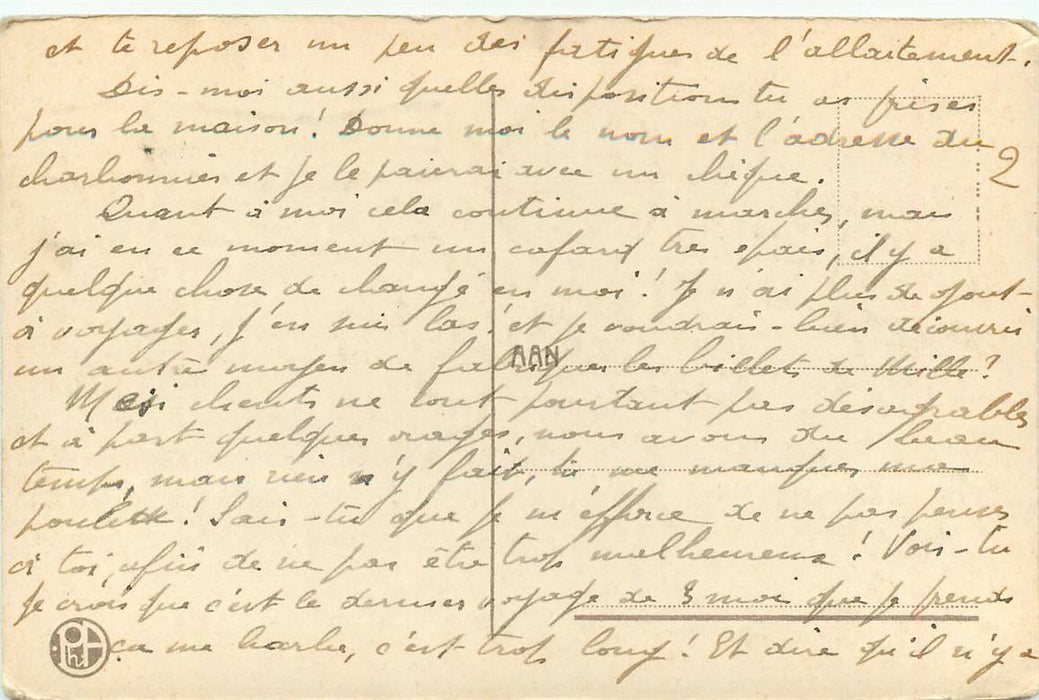 et te reposer un peu des fatigues de l'allaitement.
Dis-moi aussi quelles dispositions tu as prises
pour la maison! Donne moi le nom et l'adresse du
charbonnier et je le paierai avec un chèque.
2
Quant à moi cela continue à marcher, mais
j'ai en ce moment un cafard très épais, il y a
quelque chose de changé en moi! Je n'ai plus de goût
à voyager, j'en suis las! et je voudrais-bien découvrir
un autre moyen de fabriquer les billets de Mille?
AAN
Mes clients ne sont pourtant pas désagréables
et à part quelques orages, nous avons du beau
temps, mais rien n'y fait, tu me manques ma
poulette! Sais-tu que je m'efforce de ne pas penser
à toi, afin de ne pas être trop malheureux! Vois-tu
je crois que c'est le dernier voyage de 3 mois que je prends
ça me barbe, c'est trop long! Et dire qu'il n'y a